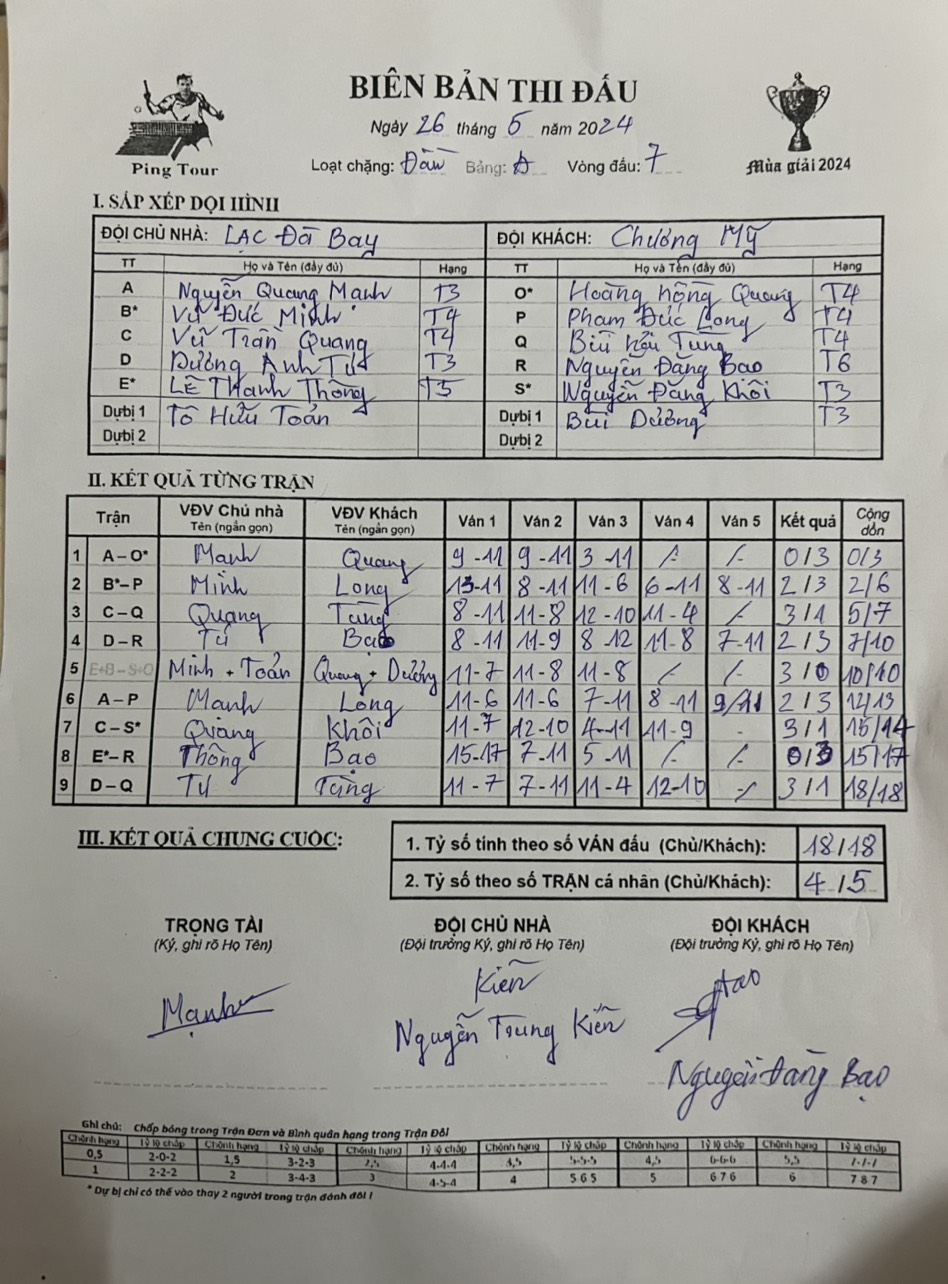 BIÊN BẢN THI ĐẤU
Ngày 26 tháng 5 năm 2024
Loạt chặng: Đầu Bảng: A Vòng đấu: 7
Ping Tour
Mùa giải 2024
I. SẮP XẾP ĐỘI HÌNH
ĐỘI CHỦ NHÀ: LẠC Đà Bay ĐỘI KHÁCH: Chương Mỹ
TT Họ và Tên (đầy đủ) Hạng TT Họ và Tên (đầy đủ) Hạng
A Nguyễn Quang Mạnh T3 O* Hoàng hồng Quang T4
B* Vũ Đức Minh T4 P Phạm Đức Long T4
C Vũ Trần Quang T4 Q Bùi hữu Tùng T4
D Dương Anh Tú T3 R Nguyễn Đăng Bao T6
E* LÊ Thanh Thông T5 S* Nguyễn Đăng Khôi T3
Dự bị 1 Tô Hữu Toản Dự bị 1 Bùi Dương T3
Dự bị 2 Dự bị 2
II. KẾT QUẢ TỪNG TRẬN
Trận VĐV Chủ nhà Tên (ngắn gọn) VĐV Khách Tên (ngắn gọn) Ván 1 Ván 2 Ván 3 Ván 4 Ván 5 Kết quả Cộng dồn
1 A – O* Manh Quang 9 - 11 9 - 11 3 - 11 /- /- 0/3 0/3
2 B* – P Minh Long 13-11 8 - 11 11 - 6 6 - 11 8 - 11 2/3 2/6
3 C – Q Quang Tùng 8 - 11 11 - 8 12 - 10 11 - 4 /- 3/1 5/7
4 D – R Tú Bao 8 - 11 11 - 9 8 - 12 11 - 8 7 - 11 2/3 7/10
5 E+B – S+O Minh + Toản Quang + Dương 11 - 7 11 - 8 11 - 8 /- /- 3/0 10/10
6 A – P Manh Long 11 - 6 11 - 6 7 - 11 8 - 11 9/11 2/3 12/13
7 C – S* Quang Khôi 11 - 7 12 - 10 4 - 11 11 - 9 - 3/1 15/14
8 E* – R Thông Bao 15 - 17 7 - 11 5 - 11 /- /- 0/3 15/17
9 D – Q Tú Tùng 11 - 7 7 - 11 11 - 4 12-10 -/ 3/1 18/18
III. KẾT QUẢ CHUNG CUỘC:
1. Tỷ số tính theo số VÁN đấu (Chủ/Khách): 18/18
2. Tỷ số theo số TRẬN cá nhân (Chủ/Khách): 4/5
TRỌNG TÀI ĐỘI CHỦ NHÀ ĐỘI KHÁCH
(Ký, ghi rõ Họ Tên) (Đội trưởng Ký, ghi rõ Họ Tên) (Đội trưởng Ký, ghi rõ Họ Tên)
Mạnh Kiên
Nguyễn Trung Kiên
Nguyễn Đăng Bạo
Ghi chú: Chấp bóng trong Trận Đơn và Bình quân hạng trong Trận Đôi
Chênh hạng Tỷ lệ chấp Chênh hạng Tỷ lệ chấp Chênh hạng Tỷ lệ chấp Chênh hạng Tỷ lệ chấp Chênh hạng Tỷ lệ chấp Chênh hạng Tỷ lệ chấp
0,5 2-0-2 1,5 3-2-3 2,5 4-4-4 3,5 5-5-5 4,5 6-6-6 5,5 7-7-7
1 2-2-2 2 3-4-3 3 4-5-4 4 5 6 5 5 6 7 6 6 7 8 7
* Dự bị chỉ có thể vào thay 2 người trong trận đánh đôi !